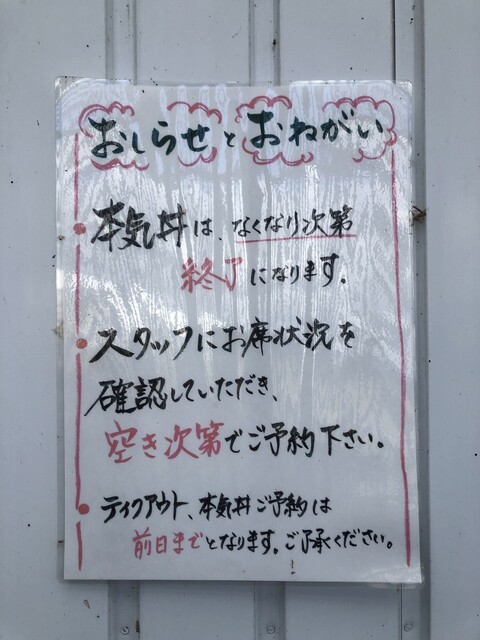 おしらせとおねがい
・本気丼は、なくなり次第
終了になります。
・スタッフにお席状況を
確認していただき、
空き次第でご予約下さい。
・テイクアウト、本気丼ご予約は
前日までとなります。ご了承ください。